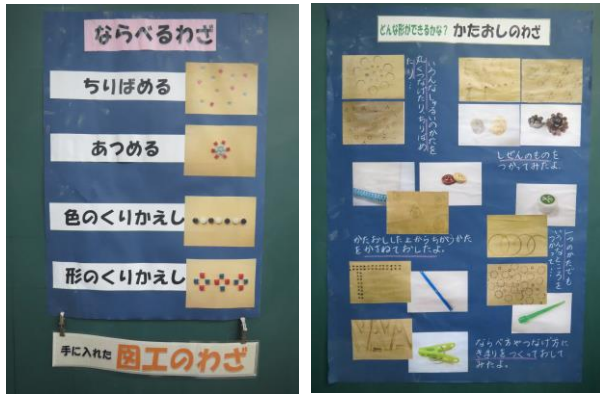 ならべるわざ
ちりばめる
あつめる
色のくりかえし
形のくりかえし
手に入れた 図工のわざ
どんな形ができるかな? かたおしのわざ
いろんなしゅるいのかたを
丸くつなげたり、ちりばめ
たり…
しぜんのものを
つかってみたよ。
かたおしした上からちがうかた
をかさねておしたよ。
一つのかたでも
いろんなところを
つかって…
ならべ方やつなげ方に
きまりをつくっておして
みたよ。